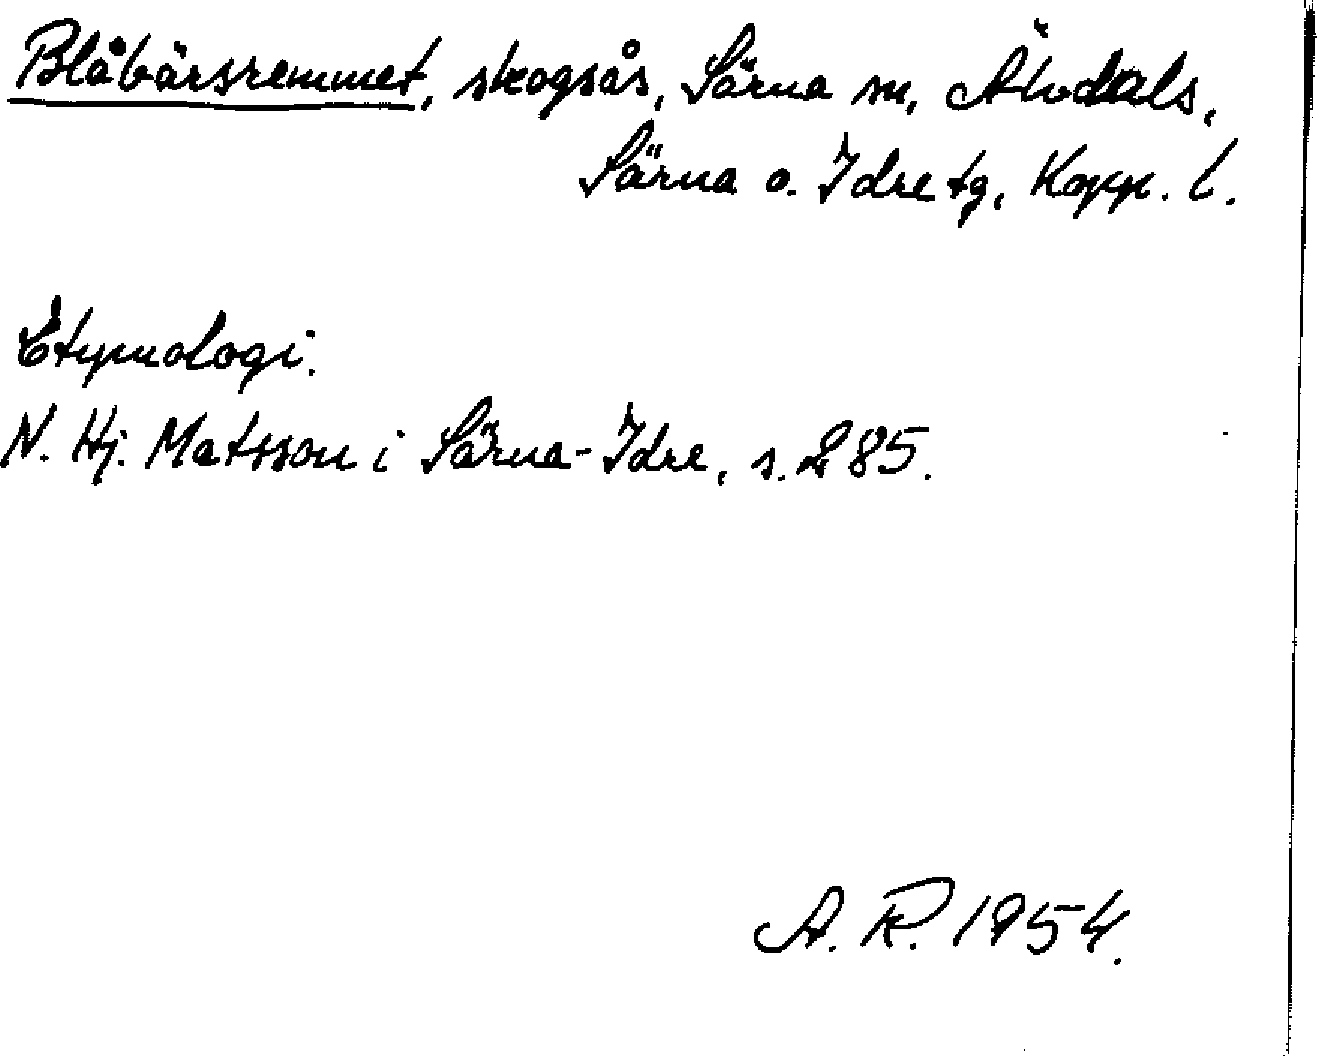 Blåbärsremmet, skogsås, Särna sn, Älvdals,
Särna o. Idre tg, Kopp. l.
Etymologi.
N. Hj. Matsson i Särna-Idre, s. 285.
A. R. 1954.